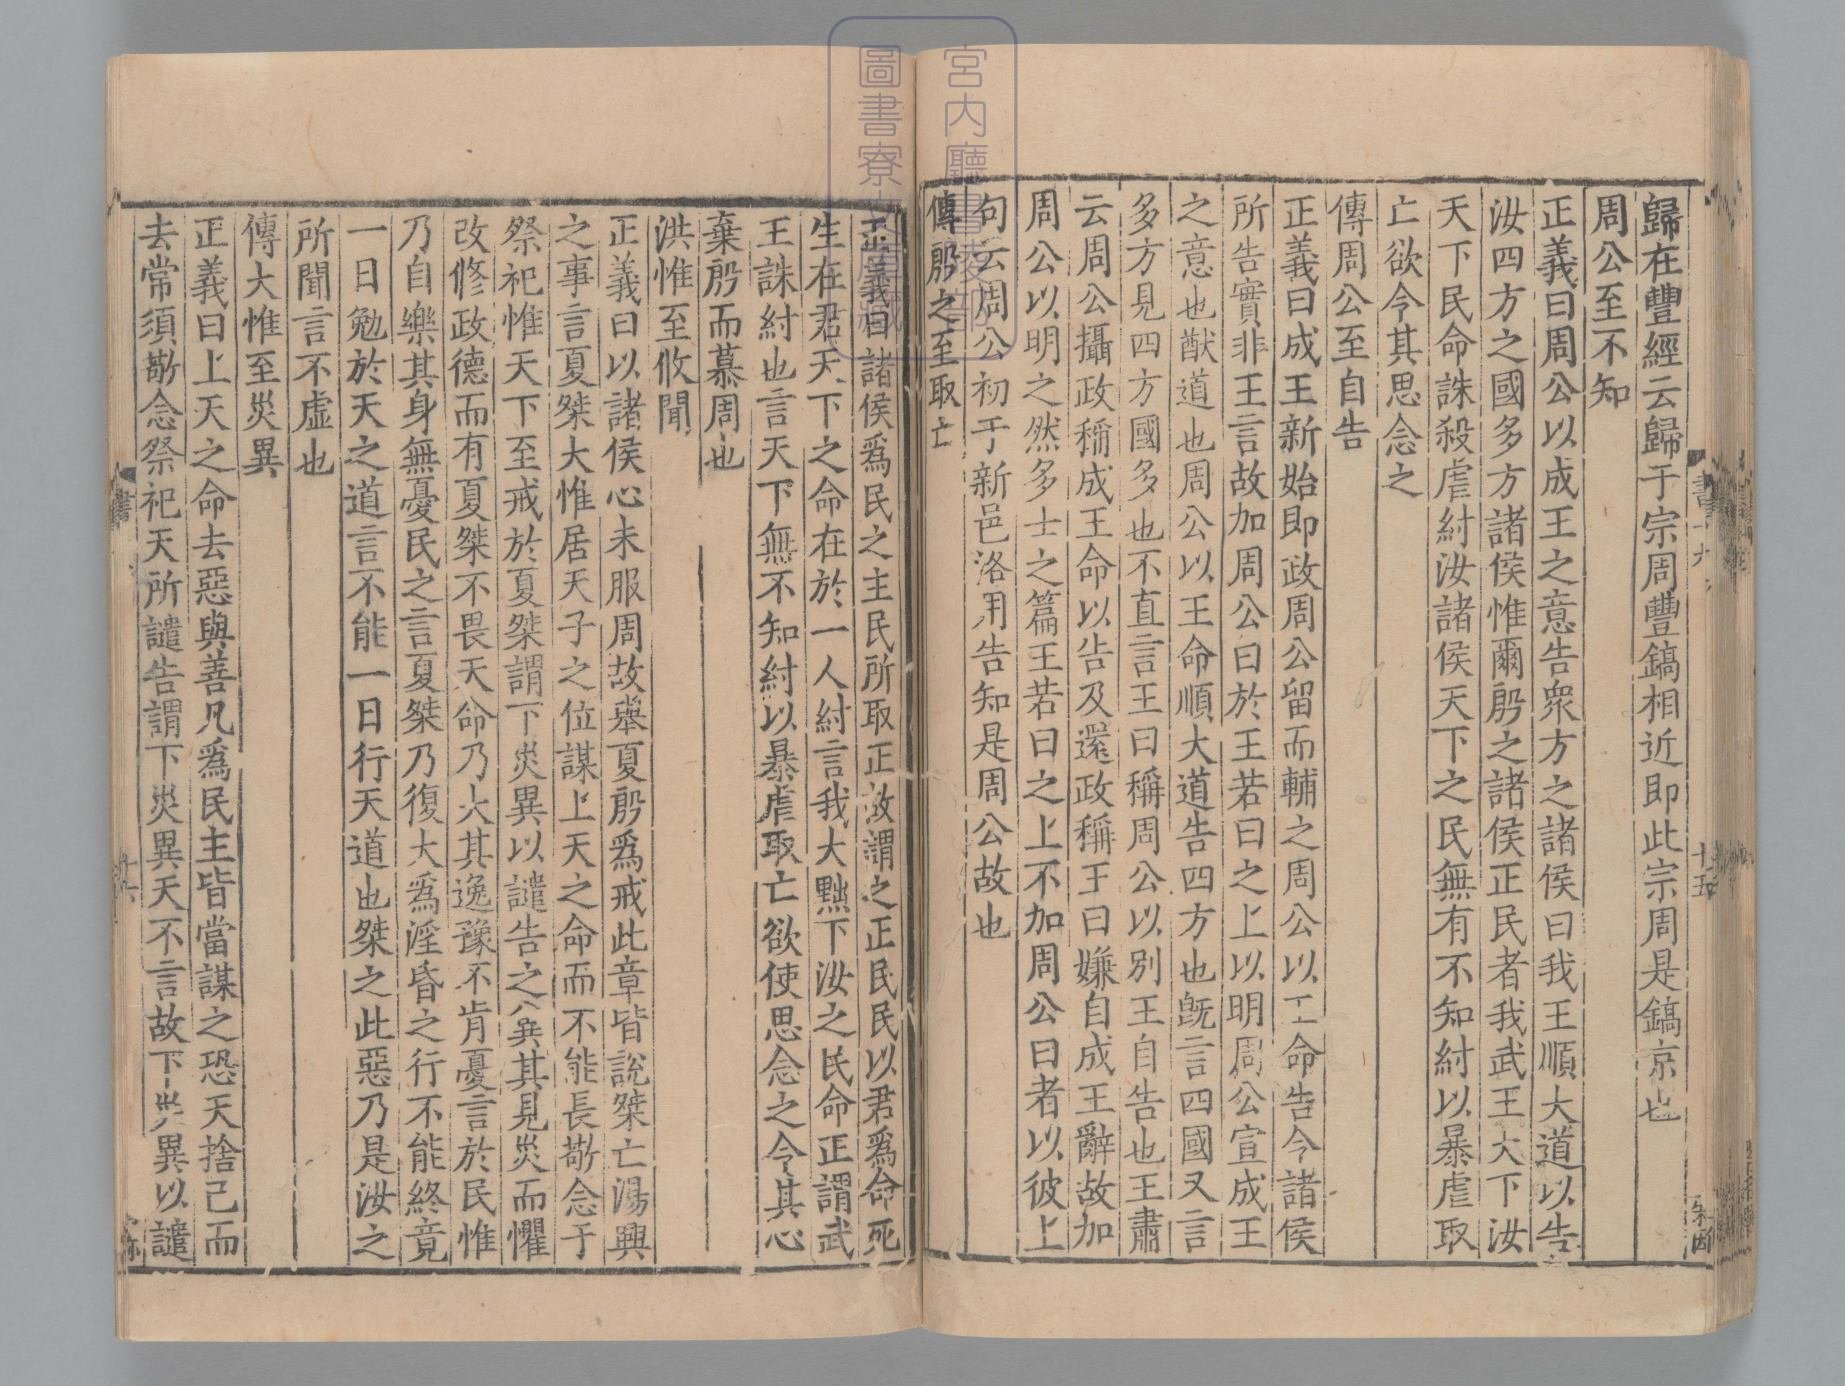 歸在豐經云歸于宗周豐鎬相近即此宗周是鎬京也
周公至不知
正義曰周公以成王之意告衆方之諸侯曰我王順大道以告
汝四方之國多方諸侯惟爾殷之諸侯正民者我武王大下汝
天下民命誅殺虐紂汝諸侯天下之民無有不知紂以暴虐取
亡欲令其思念之
傳周公至自告
正義曰成王新始即政周公留而輔之周公以王命告令諸侯
所告實非王言故加周公曰於王若曰之上以明周公宣成王
之意也猷道也周公以王命順大道告四方也旣言四國又言
多方見四方國多也不直言王曰稱周公以別王自告也王肅
云周公攝政稱成王命以告及還政稱王曰嫌自成王辭故加
周公以明之然多士之篇王若曰之上不加周公曰者以彼上
句云周公初于新邑洛用告知是周公故也
傳殷之至取亡
正義曰諸侯爲民之主民所取正故謂之正民民以君爲命死
生在君天下之命在於一人紂言我大黜下汝之民命正謂武
王誅紂也言天下無不知紂以暴虐取亡欲使思念之令其心
棄殷而慕周也
洪惟至攸聞
正義曰以諸侯心未服周故舉夏殷爲戒此章皆說桀亡湯興
之事言夏桀大惟居天子之位謀上天之命而不能長敬念于
祭祀惟天下至戒於夏桀謂下災異以譴告之冀其見災而懼
改修政德而有夏桀不畏天命乃大其逸豫不肯憂言於民惟
乃自樂其身無憂民之言夏桀乃復大爲淫昏之行不能終竟
一日勉於天之道言不能一日行天道也桀之此惡乃是汝之
所聞言不虛也
傳大惟至災異
正義曰上天之命去惡與善凡爲民主皆當謀之恐天捨己而
去常須敬念祭祀天所譴告謂下災異天不言故下災異以譴
書十九
十五
書
十六
宮內廳
圖書寮